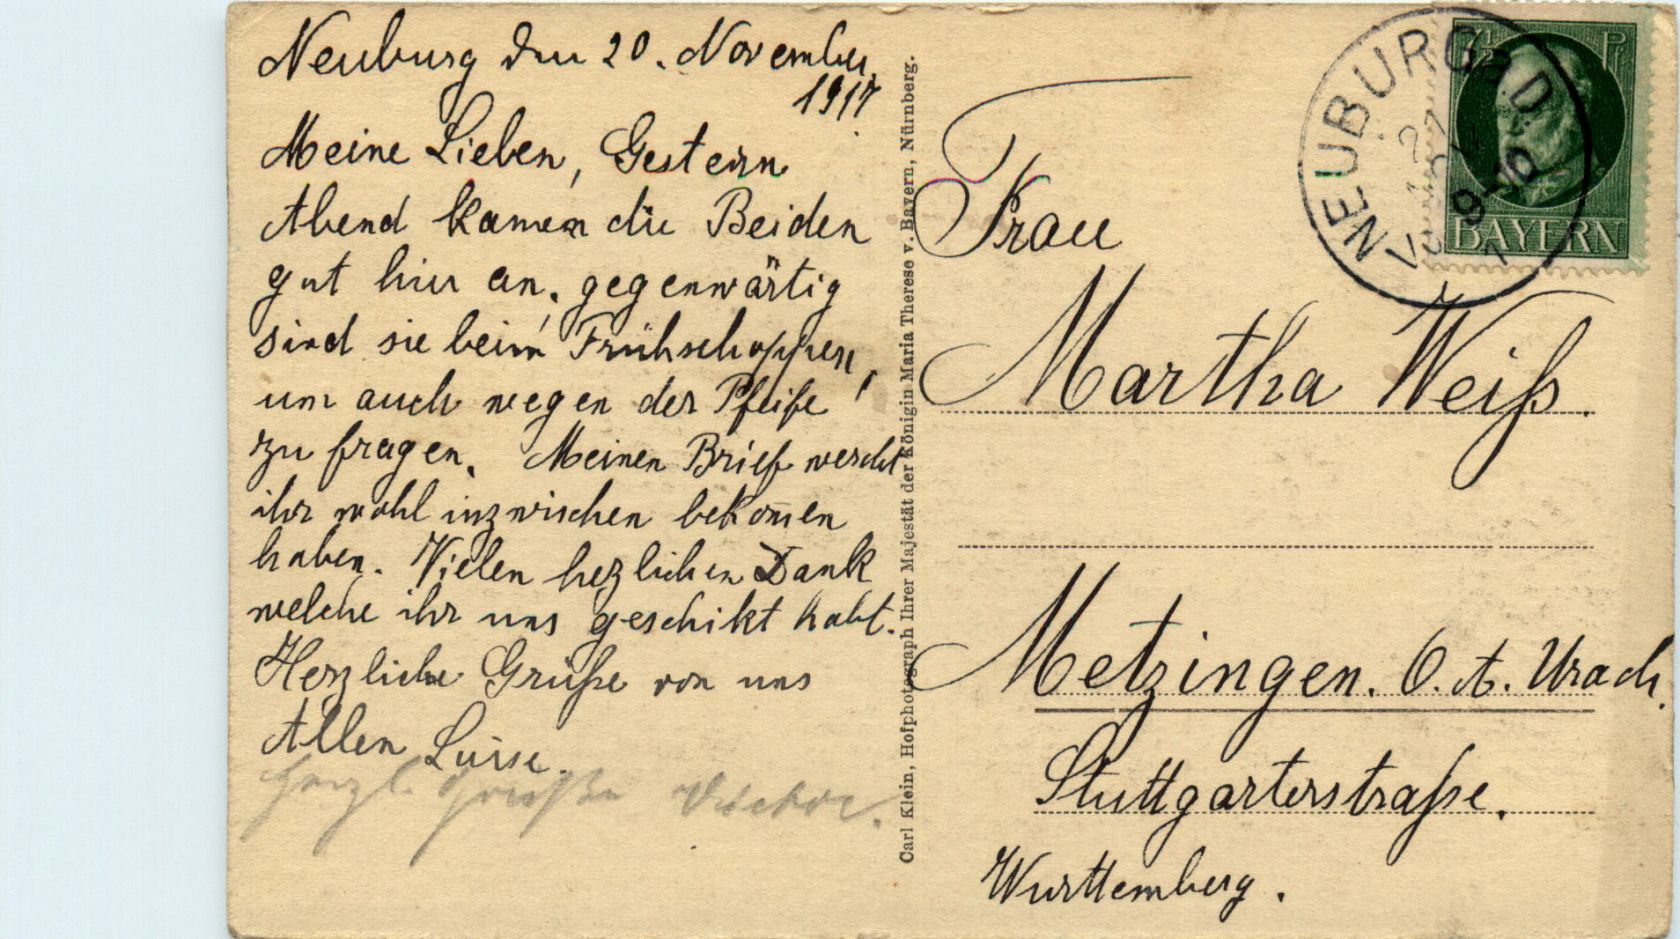 Neuburg den 20. November
1917
Meine Lieben, Gestern
Abend kamen die Beiden
gut hier an, gegenwärtig
sind sie beim Frühschoppen,
um auch wegen der Pfeife
zu fragen. Meinen Brief werdet
ihr wohl inzwischen bekom̅en
haben. Vielen hezlichen Dank
welche ihr uns geschikt habt.
Herzliche Grüße von uns
Allen Luise.
Herzl. Grüße
Carl Klein, Hofphotograph Ihrer Majestät der Königin Maria Therese v. Bayern, Nürnberg.
NEUBURG a.D.
7½ Pf
BAYERN
Frau
Martha Weiß.
Metzingen. O. A. Urach.
Stuttgarterstraße.
Württemberg.